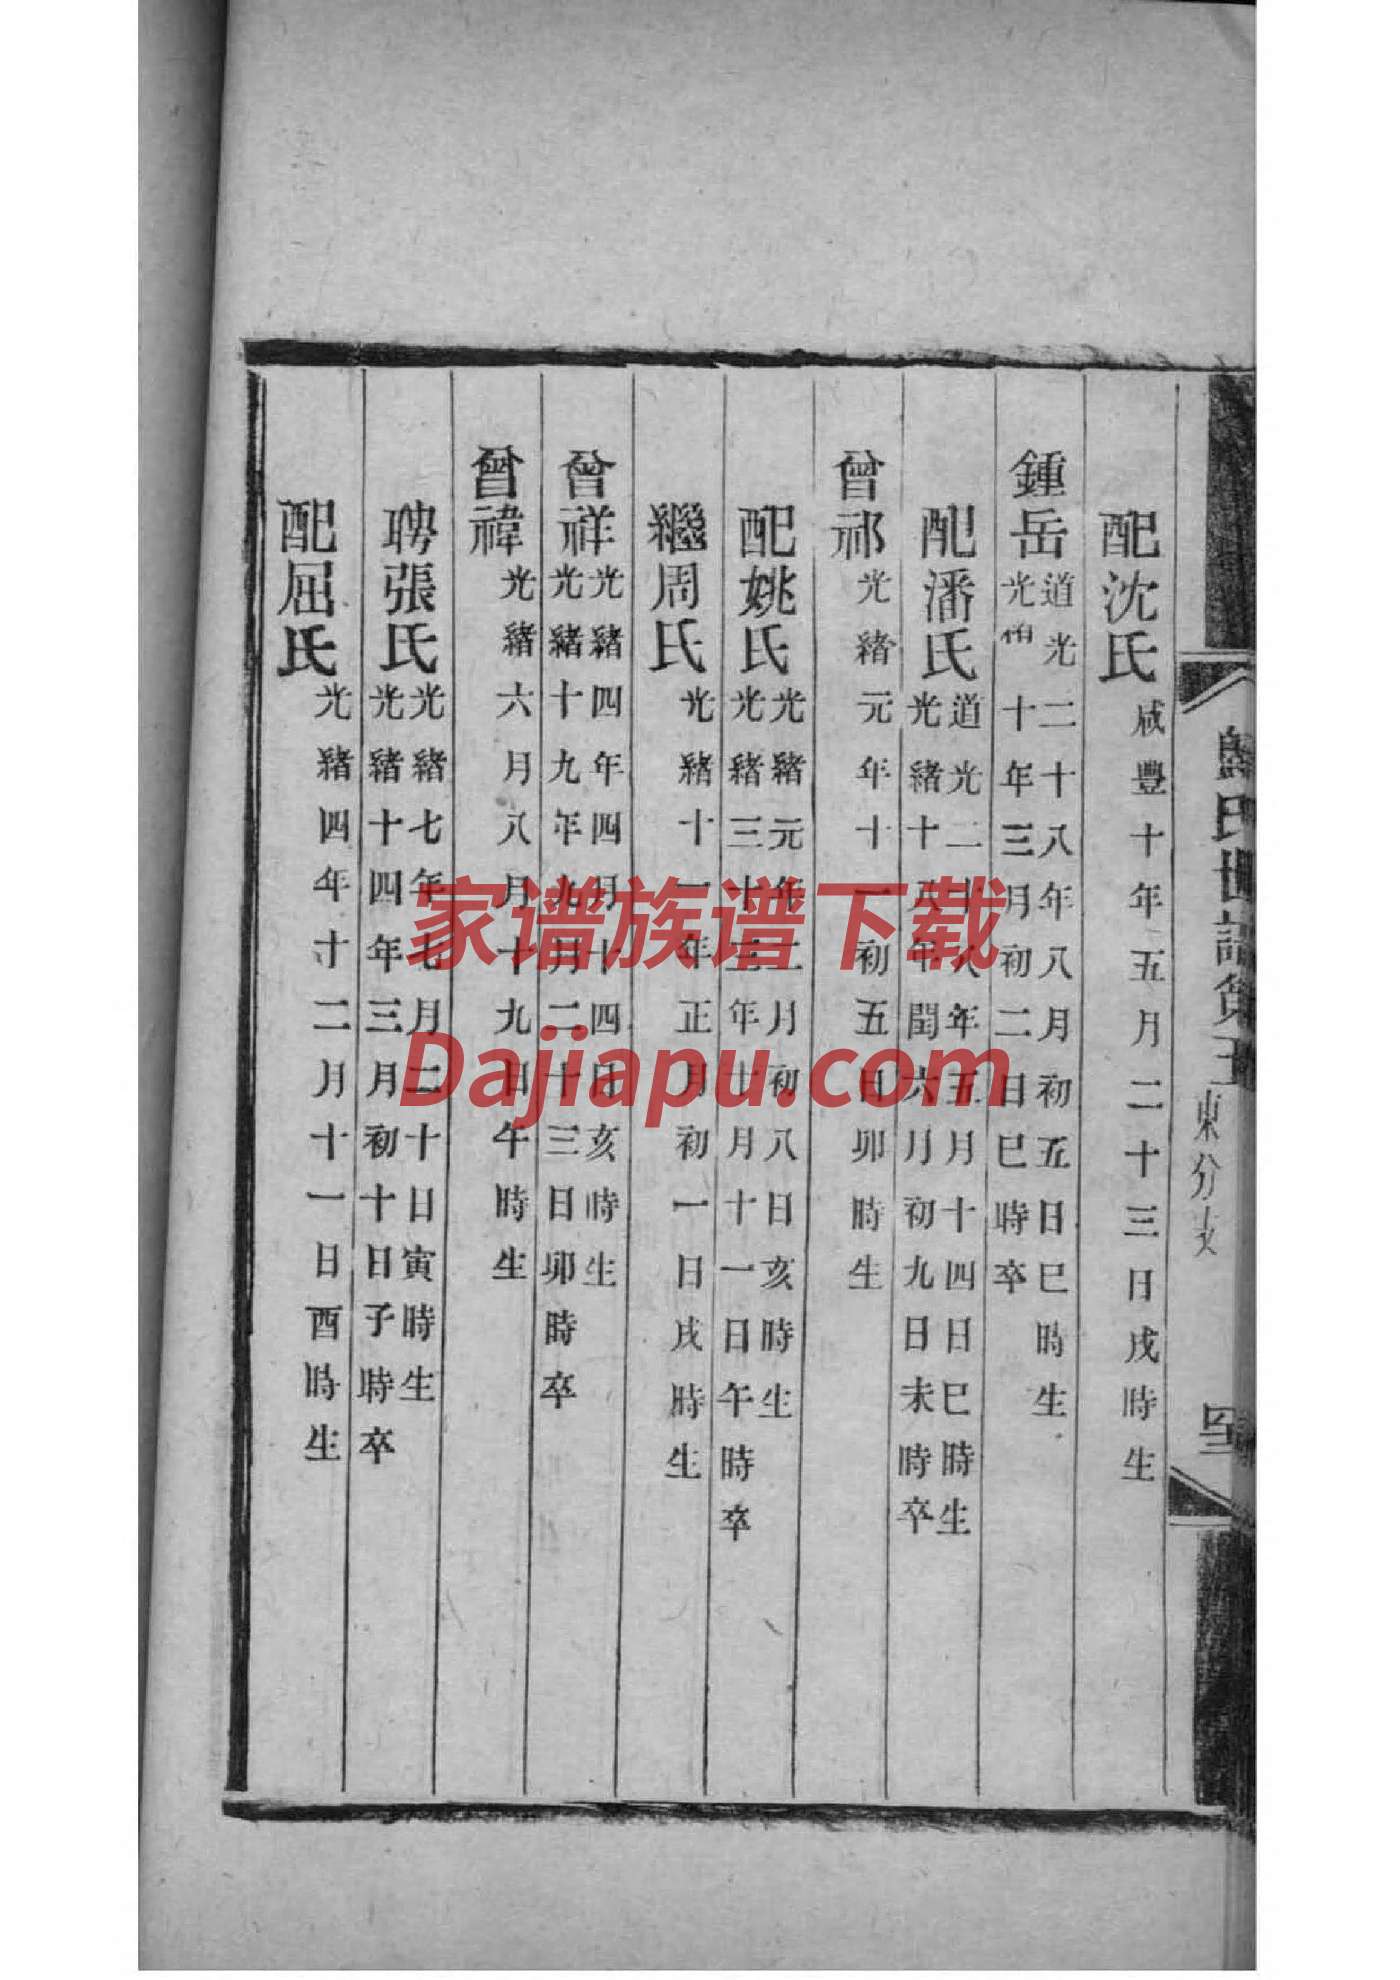 氏世譜
東分支
配沈氏 咸豐十年五月二十三日戌時生
鍾岳 道光二十八年八月初五日巳時生
光 十年三月初二日巳時卒
配潘氏 道光二十八年五月十四日巳時生
光緒十八年閏六月初九日未時卒
曾祁 光緒元年十一初五日卯時生
配姚氏 光緒元年二月初八日亥時生
光緒三十三年十月十一日午時卒
繼周氏 光緒十一年正月初一日戌時生
曾祥 光緒四年四月十四日亥時生
光緒十九年九月二十三日卯時卒
曾禕 光緒六月八月十九日午時生
聘張氏 光緒七年七月二十日寅時生
光緒十四年三月初十日子時卒
配屈氏 光緒四年十二月十一日酉時生
家谱族谱下载
Dajiapu.com